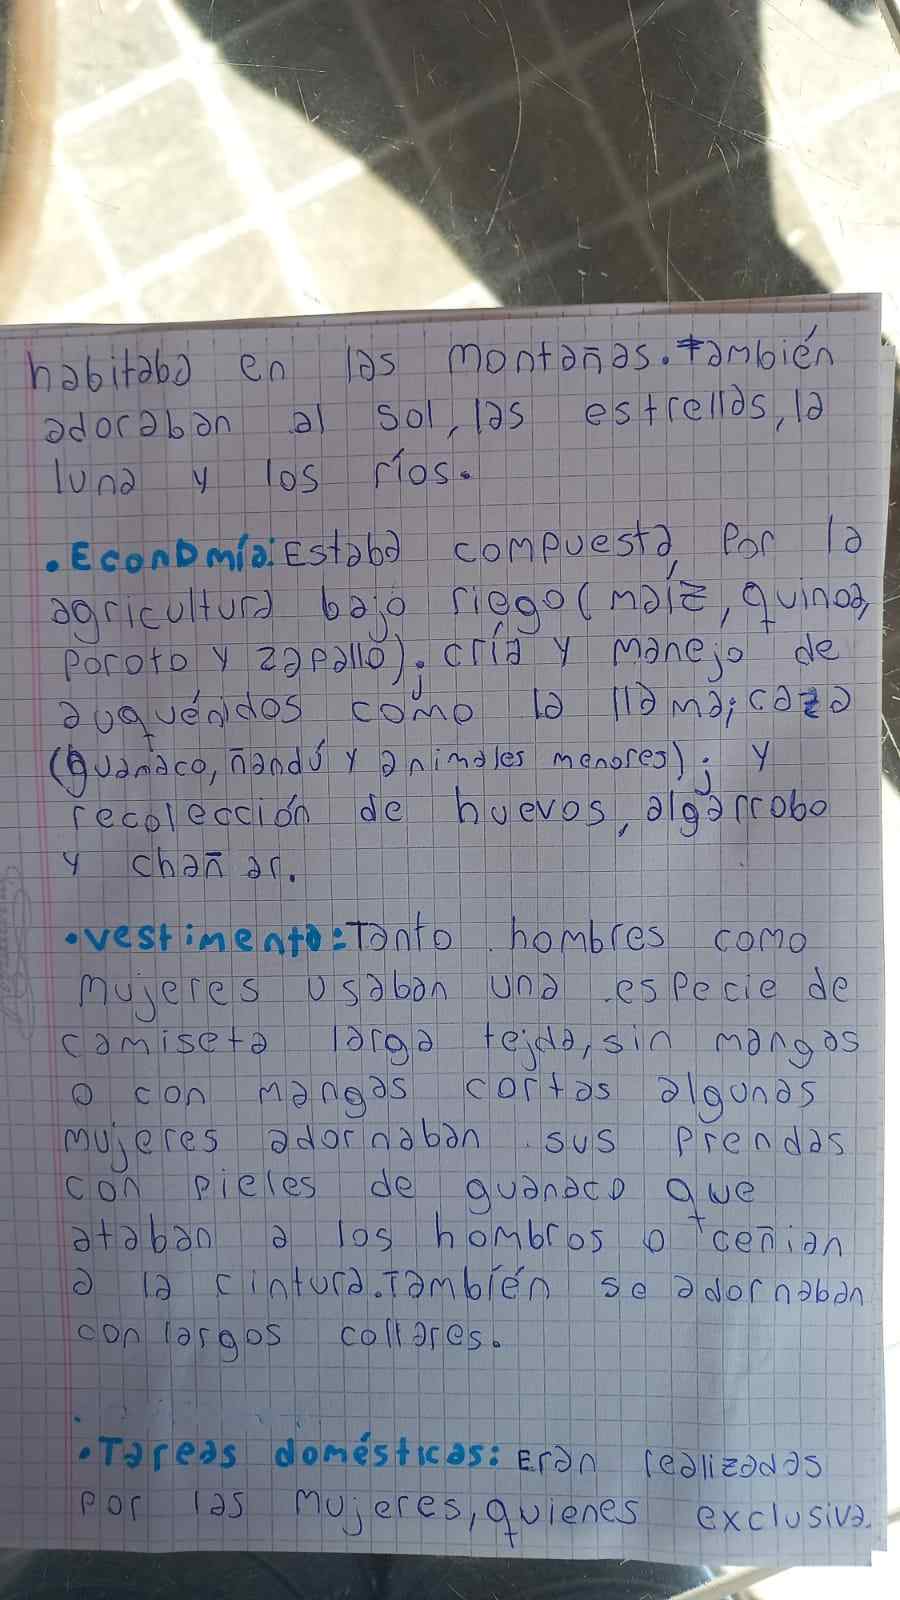 habitaba en las montañas. También
adoraban al sol, las estrellas, la
luna y los ríos.
• Economía: Estaba compuesta por la
agricultura bajo riego (maíz, quinoa,
poroto y zapallo); cría y manejo de
auquénidos como la llama; caza
(guanaco, ñandú y animales menores); y
recolección de huevos, algarrobo
y chañar.
• vestimenta: Tanto hombres como
mujeres usaban una especie de
camiseta larga tejda, sin mangas
o con mangas cortas algunas
mujeres adornaban sus prendas
con pieles de guanaco que
ataban a los hombros o ceñian
a la cintura. También se adornaban
con largos collares.
• Tareas domésticas: Eran realizadas
por las mujeres, quienes exclusiva.